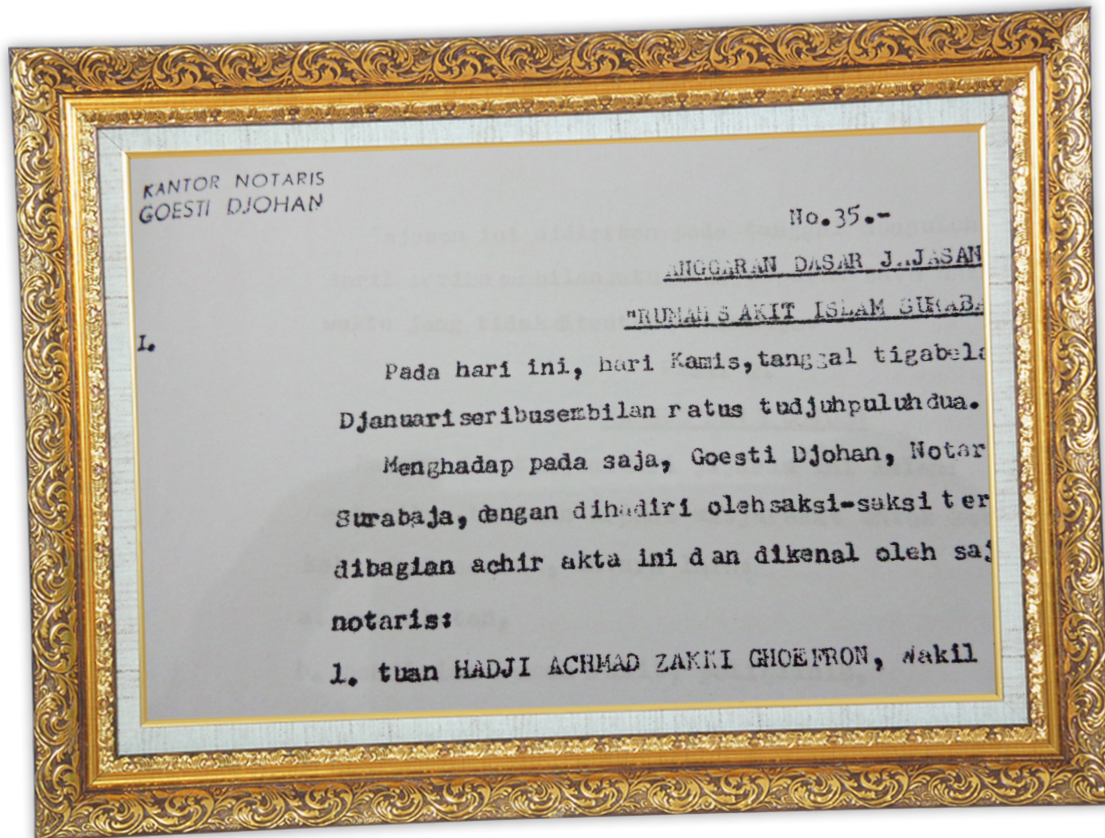 KANTOR NOTARIS
GOESTI DJOHAN
No.35.-
ANGGARAN DASAR JAJASAN
"RUMAH SAKIT ISLAM SURABA
I.
Pada hari ini, hari Kamis, tanggal tigabela
Djanuari seribusembilan ratus tudjuhpuluhdua.
Menghadap pada saja, Goesti Djohan, Notar
Surabaja, dengan dihadiri oleh saksi-saksi ter
dibagian achir akta ini dan dikenal oleh saj
notaris:
1. tuan HADJI ACHMAD ZAKKI GHOEFRON, Wakil